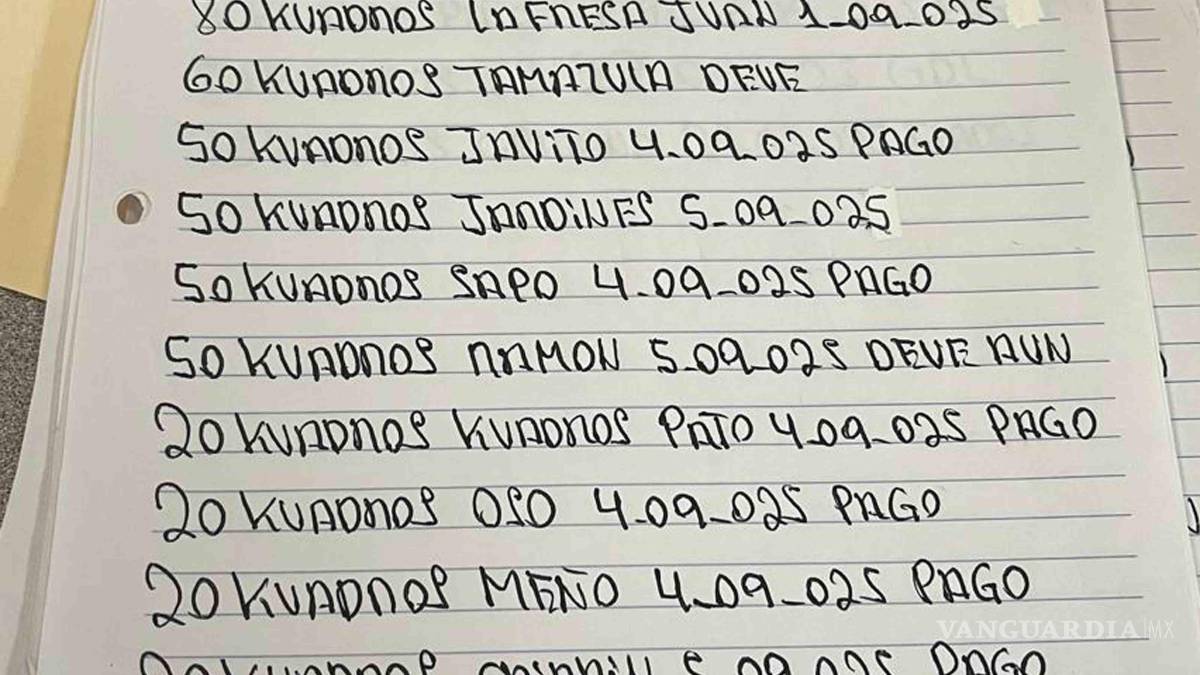 80 KUADROS LA FRESA JUAN 1_09_025
60 KUADROS TAMAZULA DEVE
50 KUADROS JAViTO 4_09_025 PAGO
50 KUADROS JARDiNES 5_09_025
50 KUADROS SAPO 4_09_025 PAGO
50 KUADROS RAMON 5_09_025 DEVE AUN
20 KUADROS KUADROS PATO 4_09_025 PAGO
20 KUADROS OSO 4_09_025 PAGO
20 KUADROS MEÑO 4_09_025 PAGO
20 KUADROS 5_09_025 PAGO
VANGUARDIA|MX